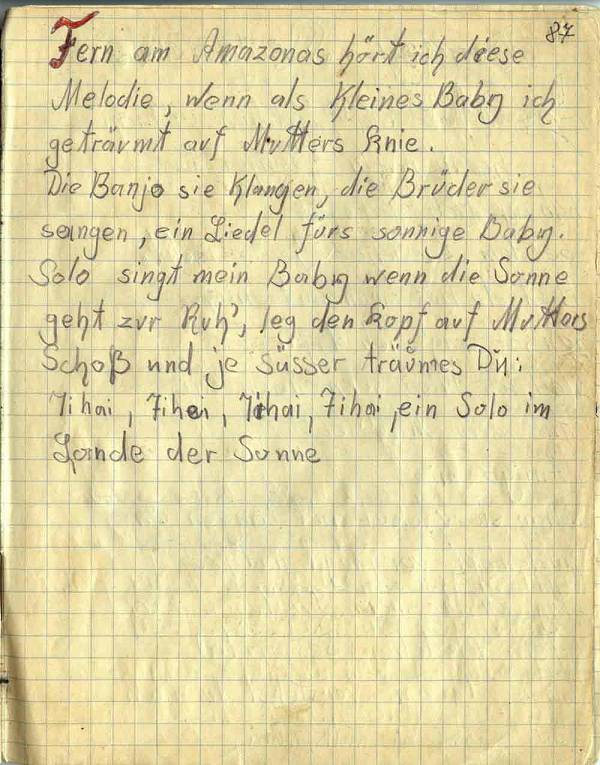 87
Fern am Amazonas hört ich diese
Melodie, wenn als kleines Baby ich
geträumt auf Mutters Knie.
Die Banjo sie klangen, die Brüder sie
sangen, ein Liedel fürs sonnige Baby.
Solo singt mein Baby wenn die Sonne
geht zur Ruh', leg den Kopf auf Mutters
Schoß und je süsser träumes Du:
Jihai, Jihai, Jihai, Jihai, ein Solo im
Lande der Sonne